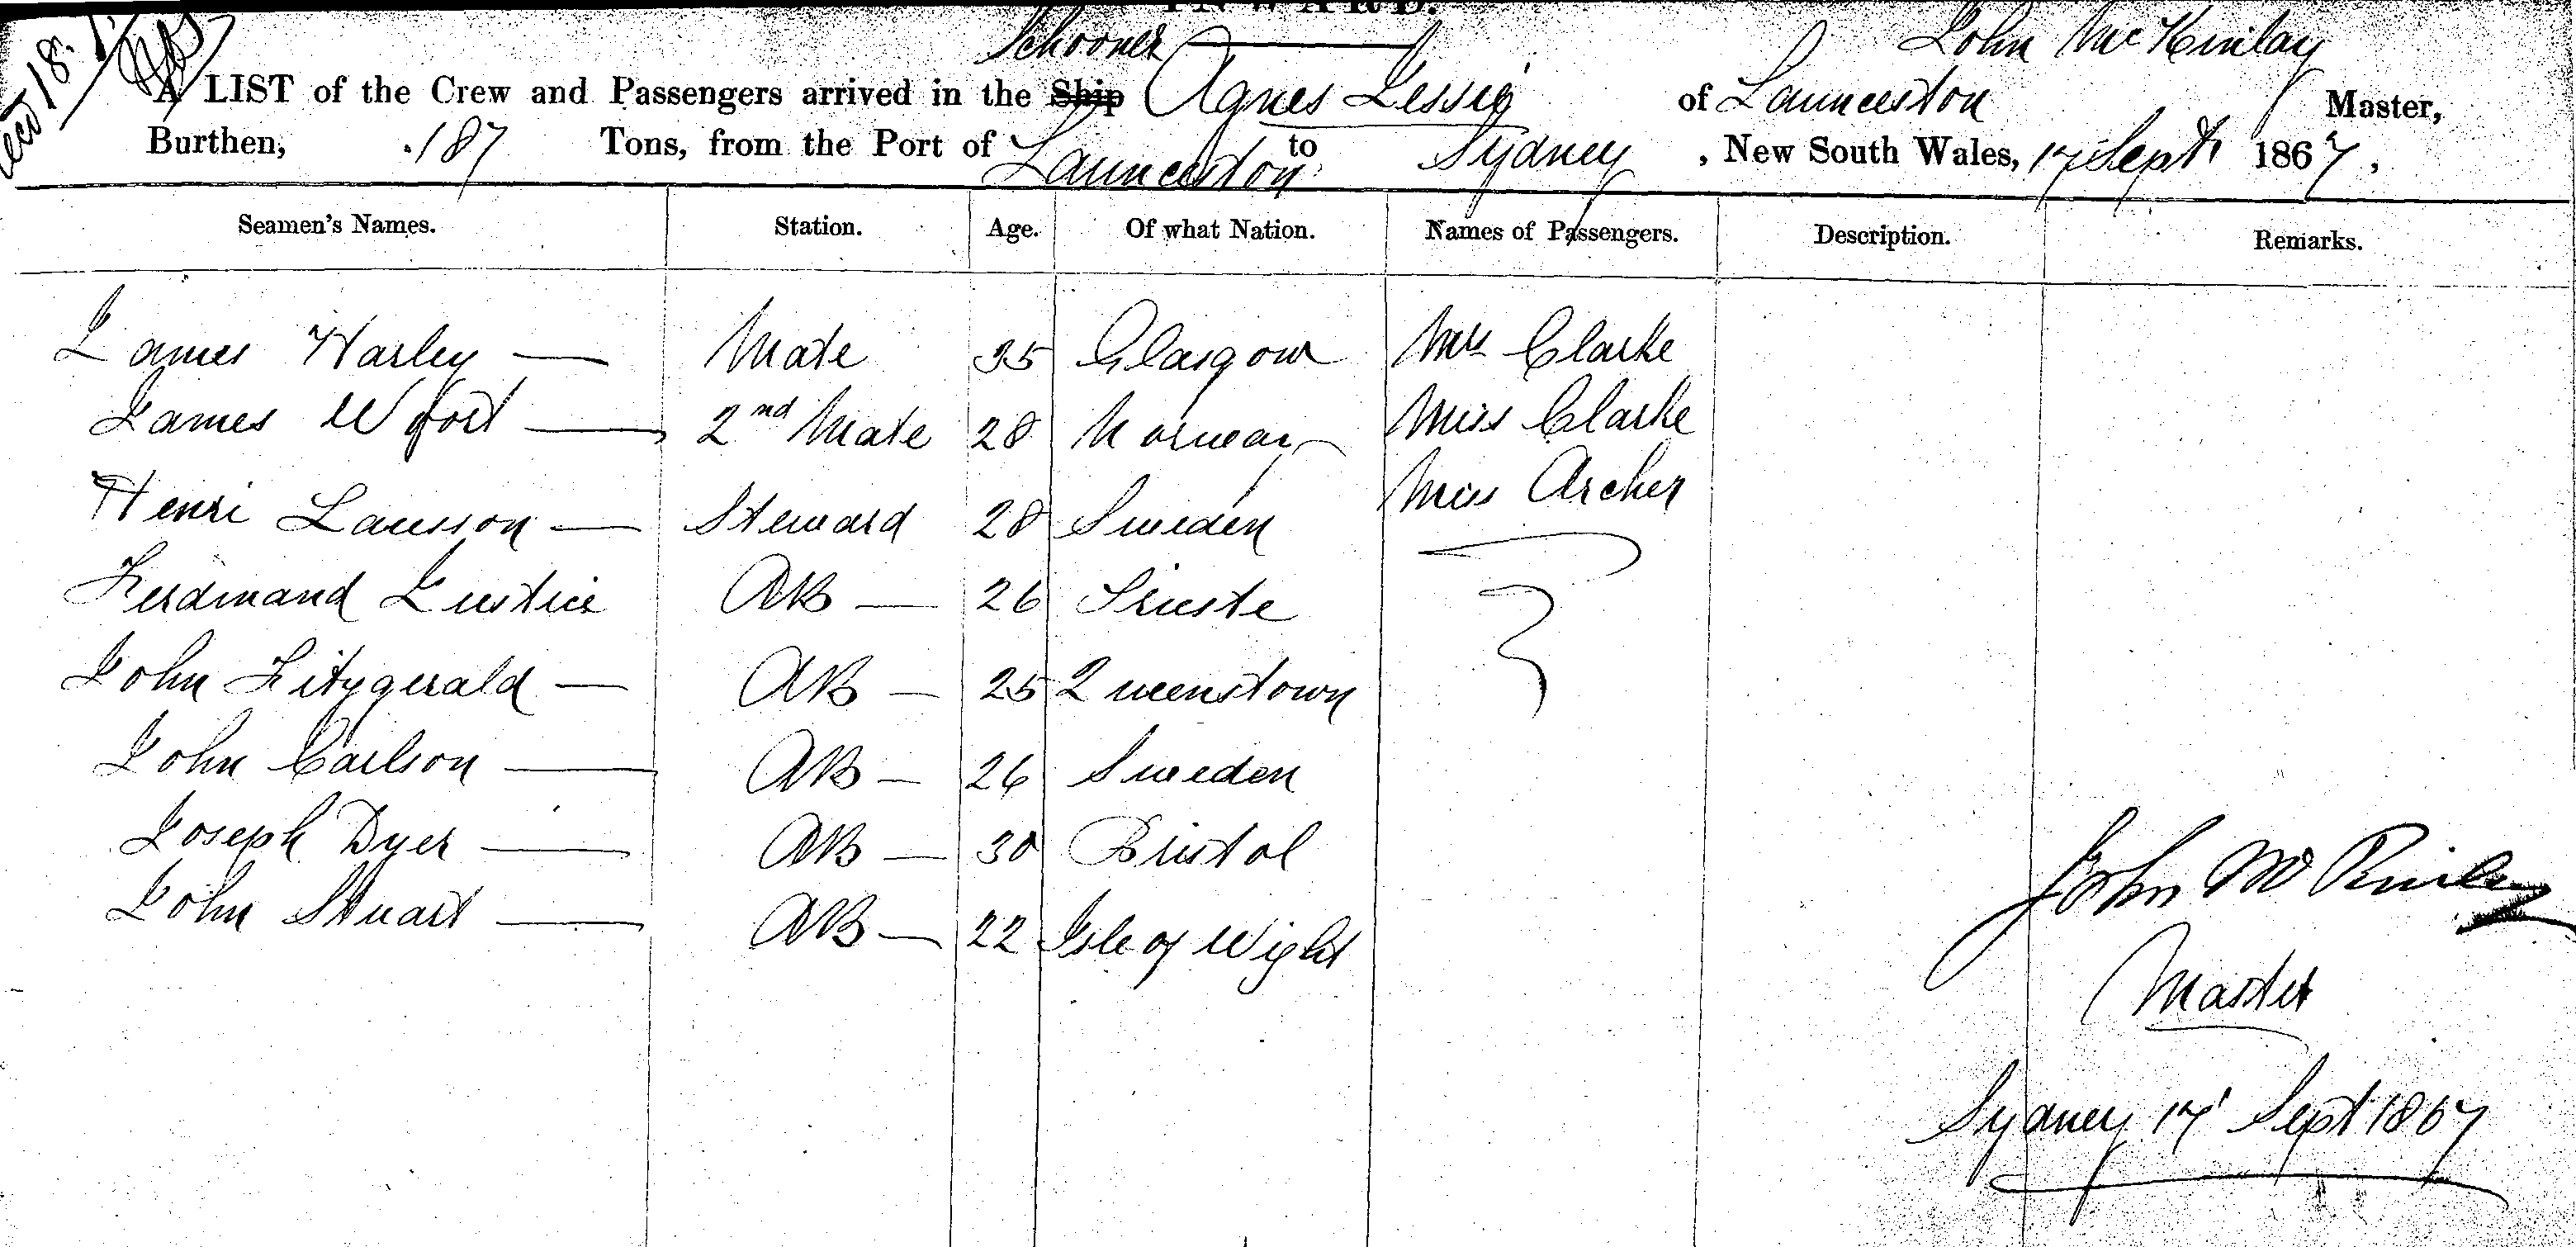 INWARD.
Schooner John McKinlay
A LIST of the Crew and Passengers arrived in the Ship Agnes Jessie of Launceston Master,
Burthen, 187 Tons, from the Port of Launceston to Sydney, New South Wales, 17 Sept 1867,
Seamen's Names. Station. Age. Of what Nation. Names of Passengers. Description. Remarks.
James Harley — Mate 35 Glasgow Mrs Clarke
James W fort — 2nd Mate 28 Norway Miss Clarke
Henri Laurson — Steward 28 Sweden Miss Archer
Ferdinand Justice AB — 26 Trieste
John Fitzgerald — AB — 25 Queenstown
John Carlson — AB — 26 Sweden
Joseph Dyer — AB — 30 Bristol
John Stuart — AB — 22 Isle of Wight
John McKinlay
Master
Sydney 17 Sept 1867